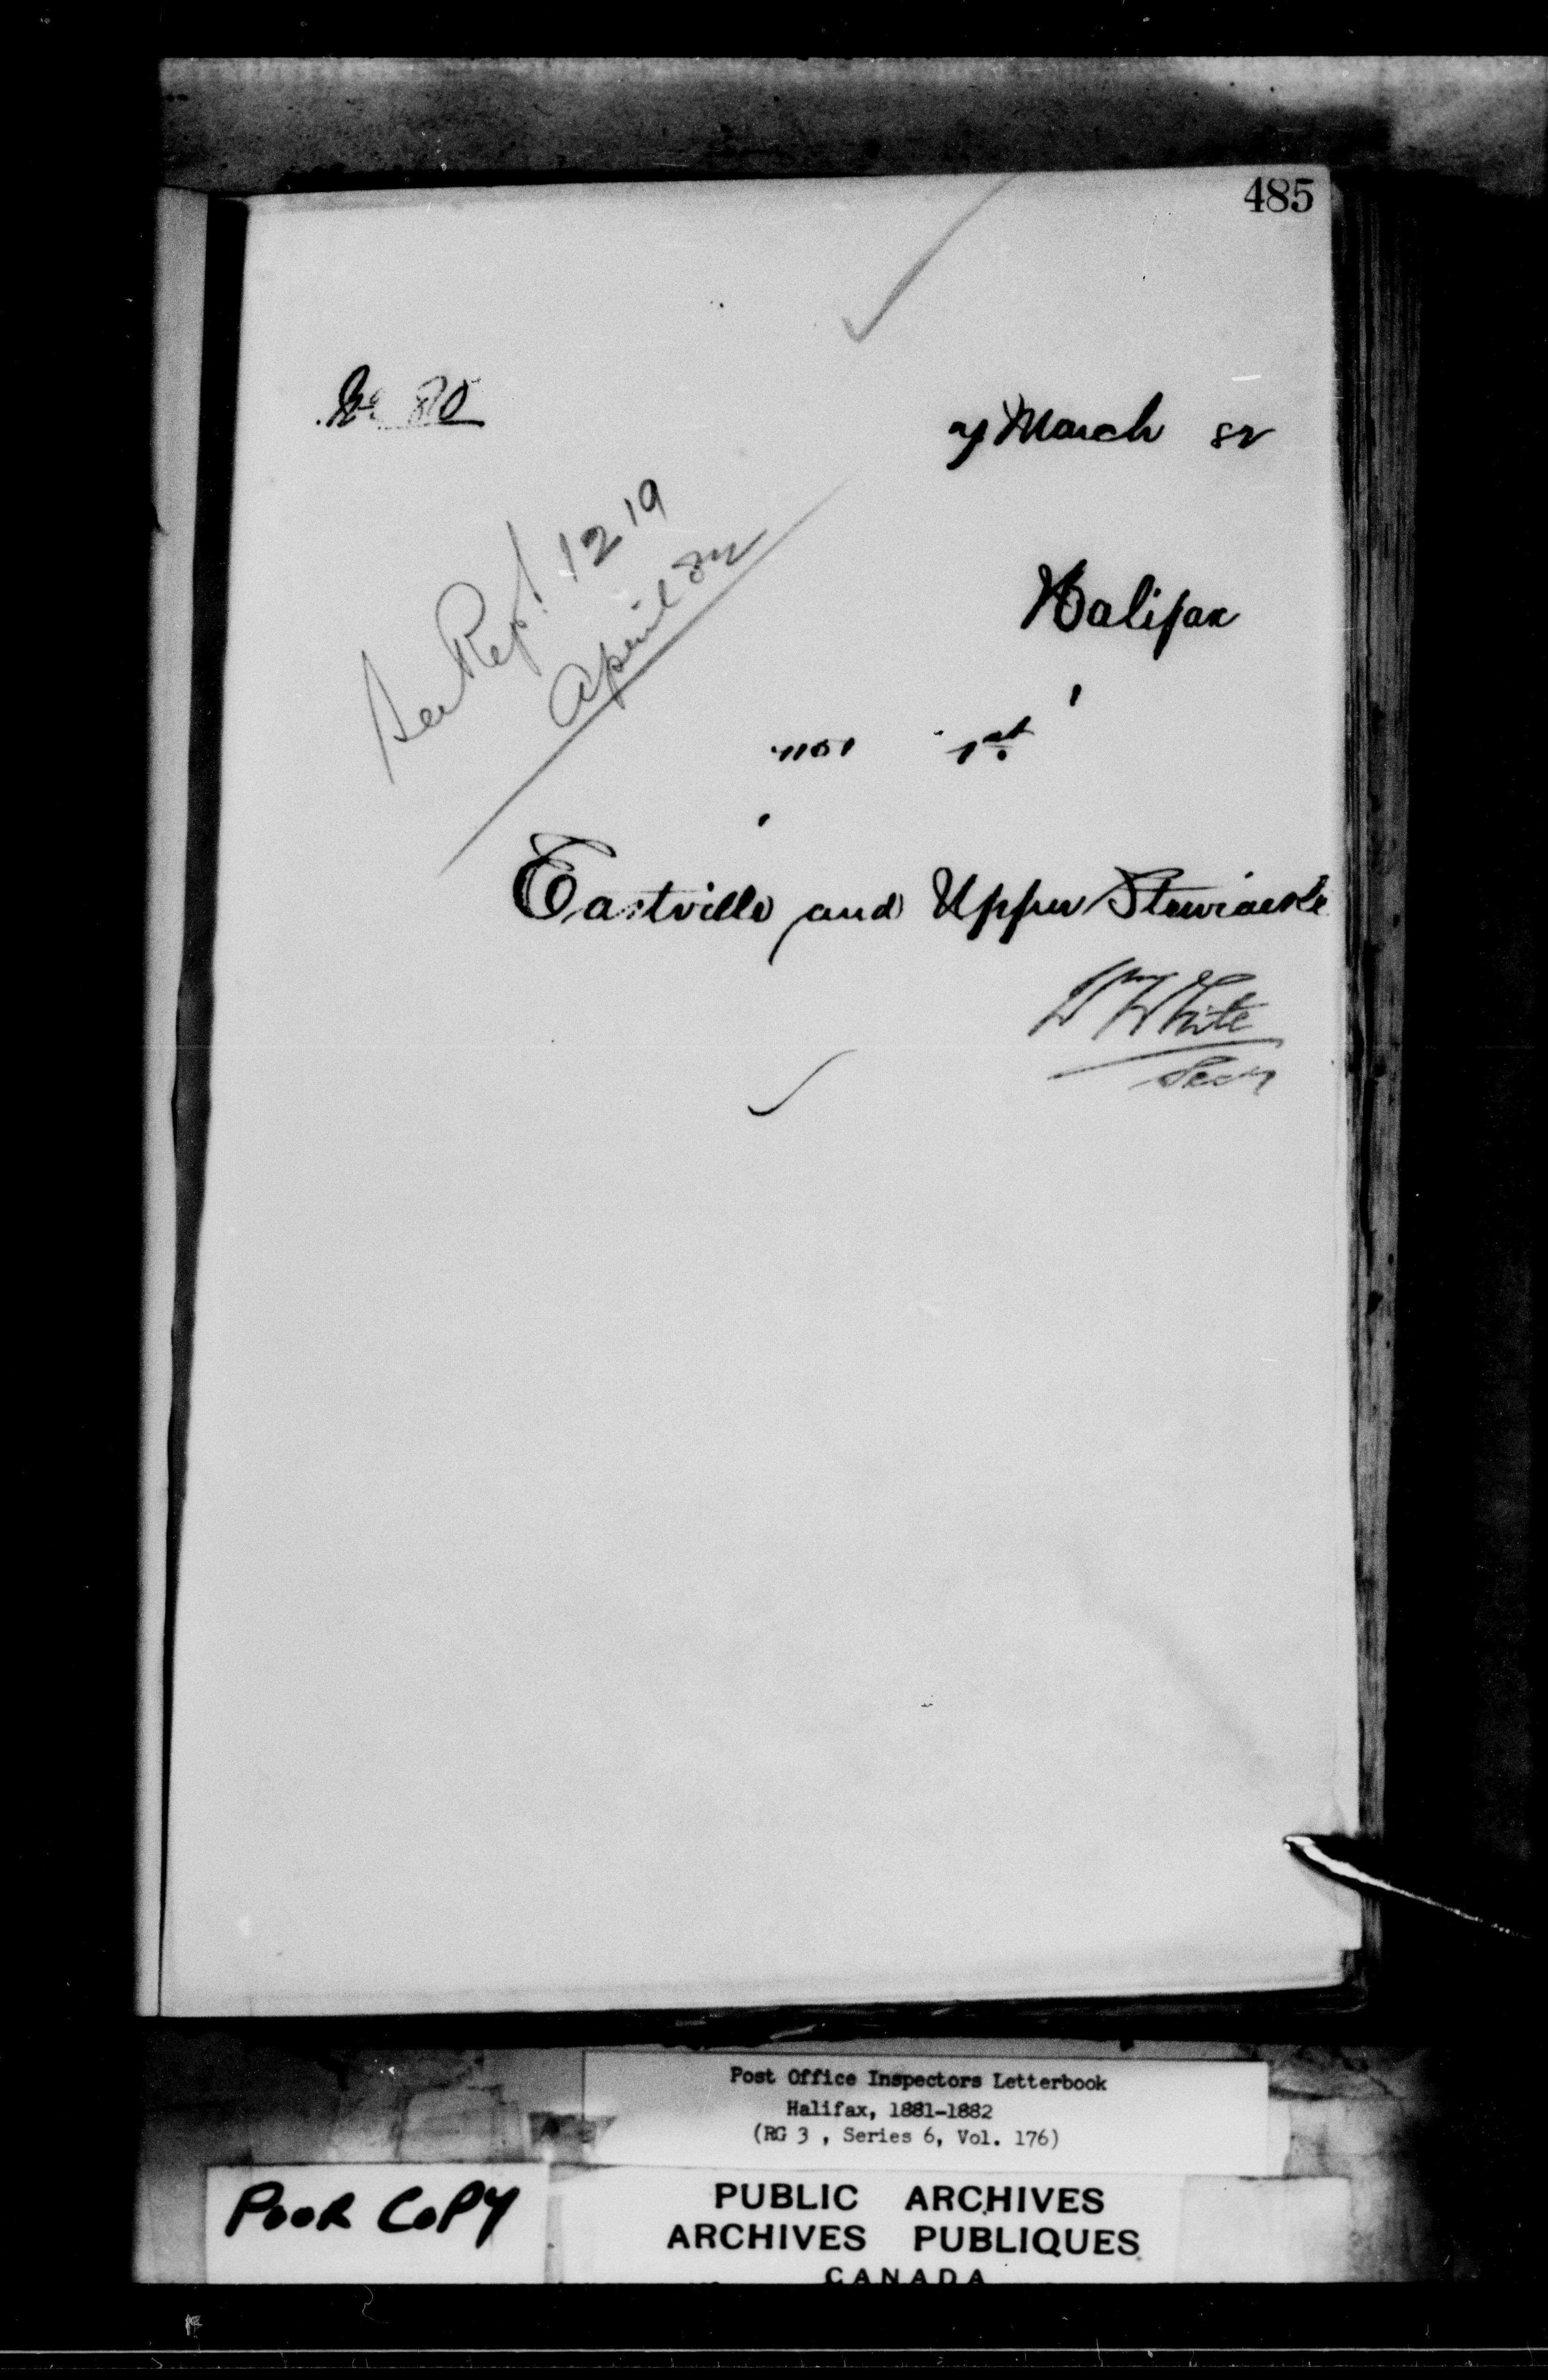 485
No 80
7 March 82
See Rep! 1219
April 82
Halifax
1151 1st
Eastville and Upper Stewiacke
Wm White
Secy
Post Office Inspectors Letterbook
Halifax, 1881-1882
(RG 3 , Series 6, Vol. 176)
POOR COPY
PUBLIC ARCHIVES
ARCHIVES PUBLIQUES
CANADA